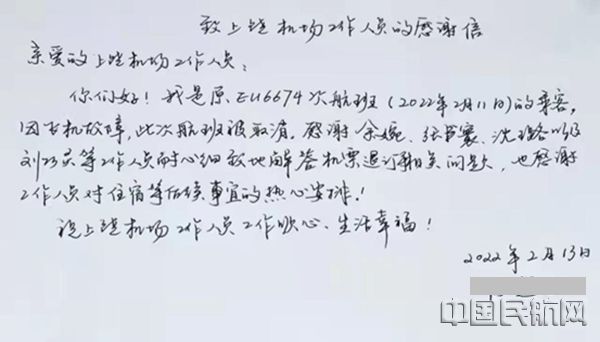 致上饶机场工作人员的感谢信
亲爱的上饶机场工作人员：
你们好！我是原EU6674次航班（2022年2月11日）的乘客，
因飞机故障，此次航班被取消，感谢余婉、张 寰、沈璐以及
刘 等工作人员耐心细致地解答机票退订相关问题，也感谢
工作人员对住宿等后续事宜的热心安排！
祝上饶机场工作人员工作顺心、生活幸福！
2022年2月13日
中国民航网